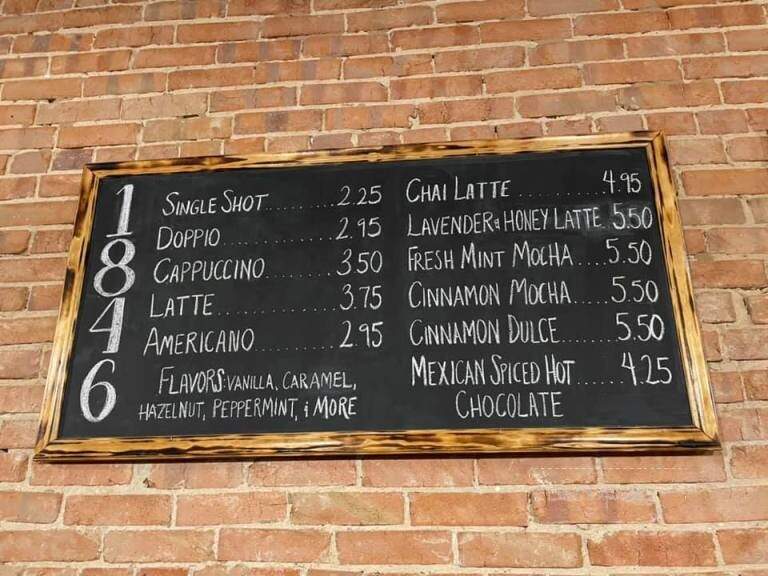 1846
SINGLE SHOT.........2.25
DOPPIO...............2.95
CAPPUCCINO.........3.50
LATTE...............3.75
AMERICANO...........2.95
FLAVORS: VANILLA, CARAMEL,
HAZELNUT, PEPPERMINT, & MORE
CHAI LATTE...........4.95
LAVENDER & HONEY LATTE.5.50
FRESH MINT MOCHA....5.50
CINNAMON MOCHA.....5.50
CINNAMON DULCE.....5.50
MEXICAN SPICED HOT.....4.25
CHOCOLATE